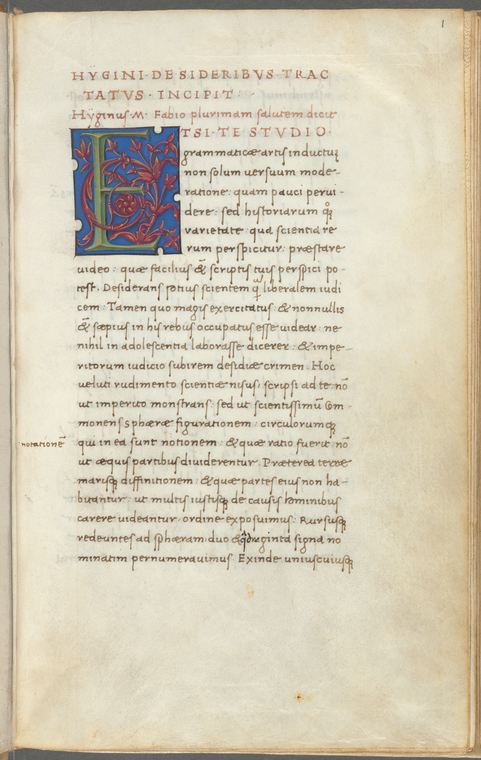 1
HYGINI·DE SIDERIBVS·TRAC
TATVS·INCIPIT:-
Hyginus·M· Fabio plurimam salutem dicit
ETSI·TE STVDIO·
grammaticæ artis inductuꝫ
non solum versuum mode-
ratione: quam pauci pervi-
dere: sed historiarum qꝫ
varietate qua scientia re
rum perspicitur: præstare
video: quæ facilius & scriptis tuis perspici po-
test. Desiderans totius scientem q̃ liberalem iudi
cem. Tamen quo magis exercitatus: & nonnullis
& sæpius in his rebus occupatus esse videar: ne
nihil in adolescentia laborasse dicerer: & impe-
ritorum iudicio subirem desidiæ crimen. Hoc
veluti rudimento scientiæ nisus: scripsi ad te nō
ut imperito monstrans: sed ut scientissimū com-
monens sphæræ figurationem: circulorumqꝫ
notationē
qui in ea sunt notionem: & quæ ratio fuerit nō
ut æquis partibus dividerentur. Præterea terræ
marisqꝫ diffinitionem: & quæ partes eius non ha-
bitantur: ut multis iustisqꝫ de causis hominibus
carere videantur ordine exposuimus. Rursusqꝫ
redeuntes ad sphæram duo & qdraginta signa no
minatim pernumeravimus. Exinde uniuscuiusqꝫ